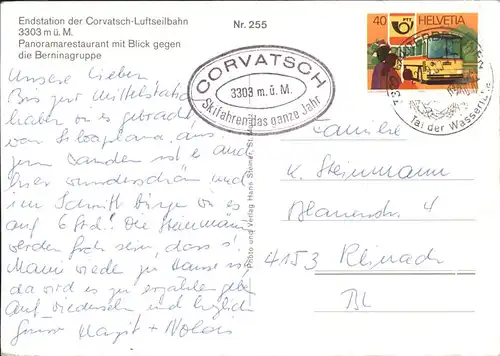 Endstation der Corvatsch-Luftseilbahn
3303 m ü. M.
Panoramarestaurant mit Blick gegen
die Berninagruppe
Nr. 255
CORVATSCH
3303 m. ü. M.
Skifahren das ganze Jahr
40
PTT
HELVETIA
Tal der
Unsere Lieben
Bis zur Mittelstation
haben wir es gebracht
von Silvaplana aus.
zum ist es auch
hier wunderschön und
im Schnitt wir es
auf 6 Std! Die Steinmann
werden froh sein, dass s'
Mami wieder zu Hause ist,
da wird es zu erzählen geben
Auf wiedersehen und herzlich
Margit +
Photo und Verlag Hans Steiner, St.
Familie
K. Steinmann
4
4153 Reinach
BL